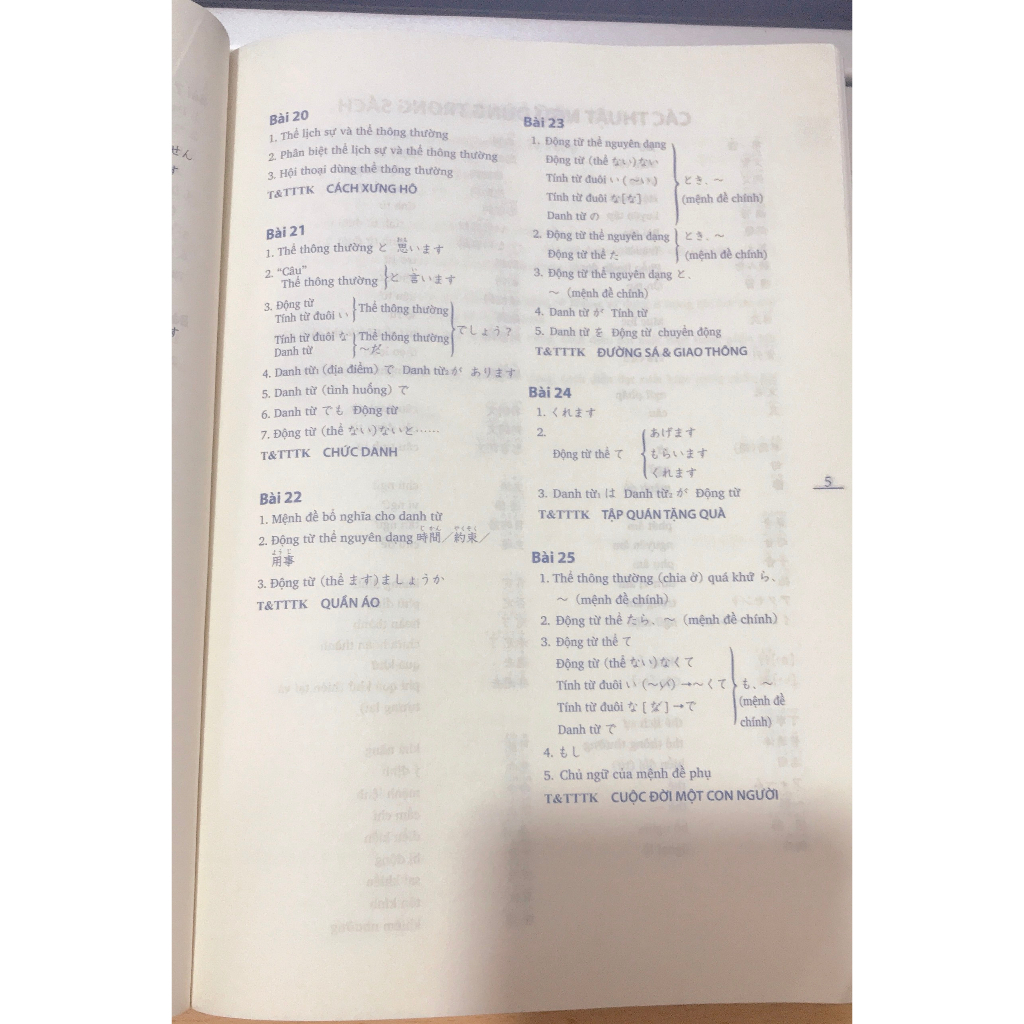 Bài 20
1. Thể lịch sự và thể thông thường
2. Phân biệt thể lịch sự và thể thông thường
3. Hội thoại dùng thể thông thường
T&TTTK CÁCH XƯNG HÔ
Bài 21
1. Thể thông thường と 思います
2. “Câu”
Thể thông thường と 言います
3. Động từ
Tính từ đuôi い Thể thông thường
Tính từ đuôi な Thể thông thường
Danh từ ～だ
でしょう？
4. Danh từ₁ (địa điểm) で Danh từ₂ が あります
5. Danh từ (tình huống) で
6. Danh từ でも Động từ
7. Động từ (thể ない)ないと……
T&TTTK CHỨC DANH
Bài 22
1. Mệnh đề bổ nghĩa cho danh từ
2. Động từ thể nguyên dạng 時間／約束／
用事
3. Động từ (thể ます)ましょうか
T&TTTK QUẦN ÁO
Bài 23
1. Động từ thể nguyên dạng
Động từ (thể ない)ない
Tính từ đuôi い (～い)
Tính từ đuôi な[な]
Danh từ の
とき、～
(mệnh đề chính)
2. Động từ thể nguyên dạng
Động từ thể た
とき、～
(mệnh đề chính)
3. Động từ thể nguyên dạng と、
～ (mệnh đề chính)
4. Danh từ が Tính từ
5. Danh từ を Động từ chuyển động
T&TTTK ĐƯỜNG SÁ & GIAO THÔNG
Bài 24
1. くれます
2.
Động từ thể て
あげます
もらいます
くれます
3. Danh từ₁ は Danh từ₂ が Động từ
T&TTTK TẬP QUÁN TẶNG QUÀ
Bài 25
1. Thể thông thường (chia ở) quá khứ ら、
～ (mệnh đề chính)
2. Động từ thể たら、～ (mệnh đề chính)
3. Động từ thể て
Động từ (thể ない)なくて
Tính từ đuôi い (～い) →～くて
Tính từ đuôi な [な] →で
Danh từ で
も、～
(mệnh đề
chính)
4. もし
5. Chủ ngữ của mệnh đề phụ
T&TTTK CUỘC ĐỜI MỘT CON NGƯỜI
5